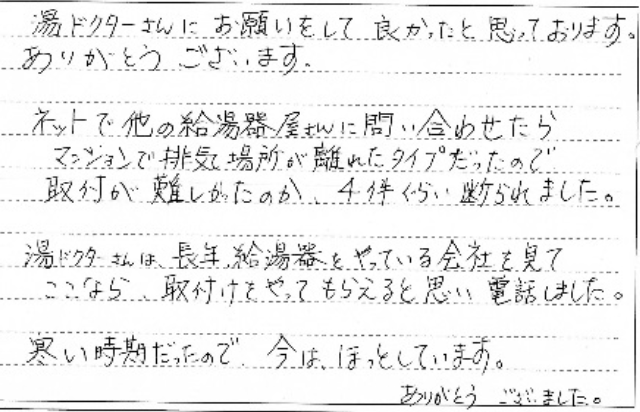 湯ドクターさんにお願いをして良かったと思っております。
ありがとうございます。
ネットで他の給湯器屋さんに問い合わせたら
マンションで排気場所が離れたタイプだったので
取付が難しかったのか、4件くらい断られました。
湯ドクターさんは、長年、給湯器をやっている会社を見て
ここなら、取付けをやってもらえると思い電話しました。
寒い時期だったので、今は、ほっとしています。
ありがとうございました。